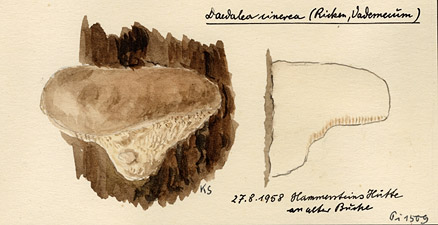 Daedalea cinerea (Ricken, Vademecum)
KS
27.8.1958 Hammersteins Hütte
an alter Buche
Pi 1509